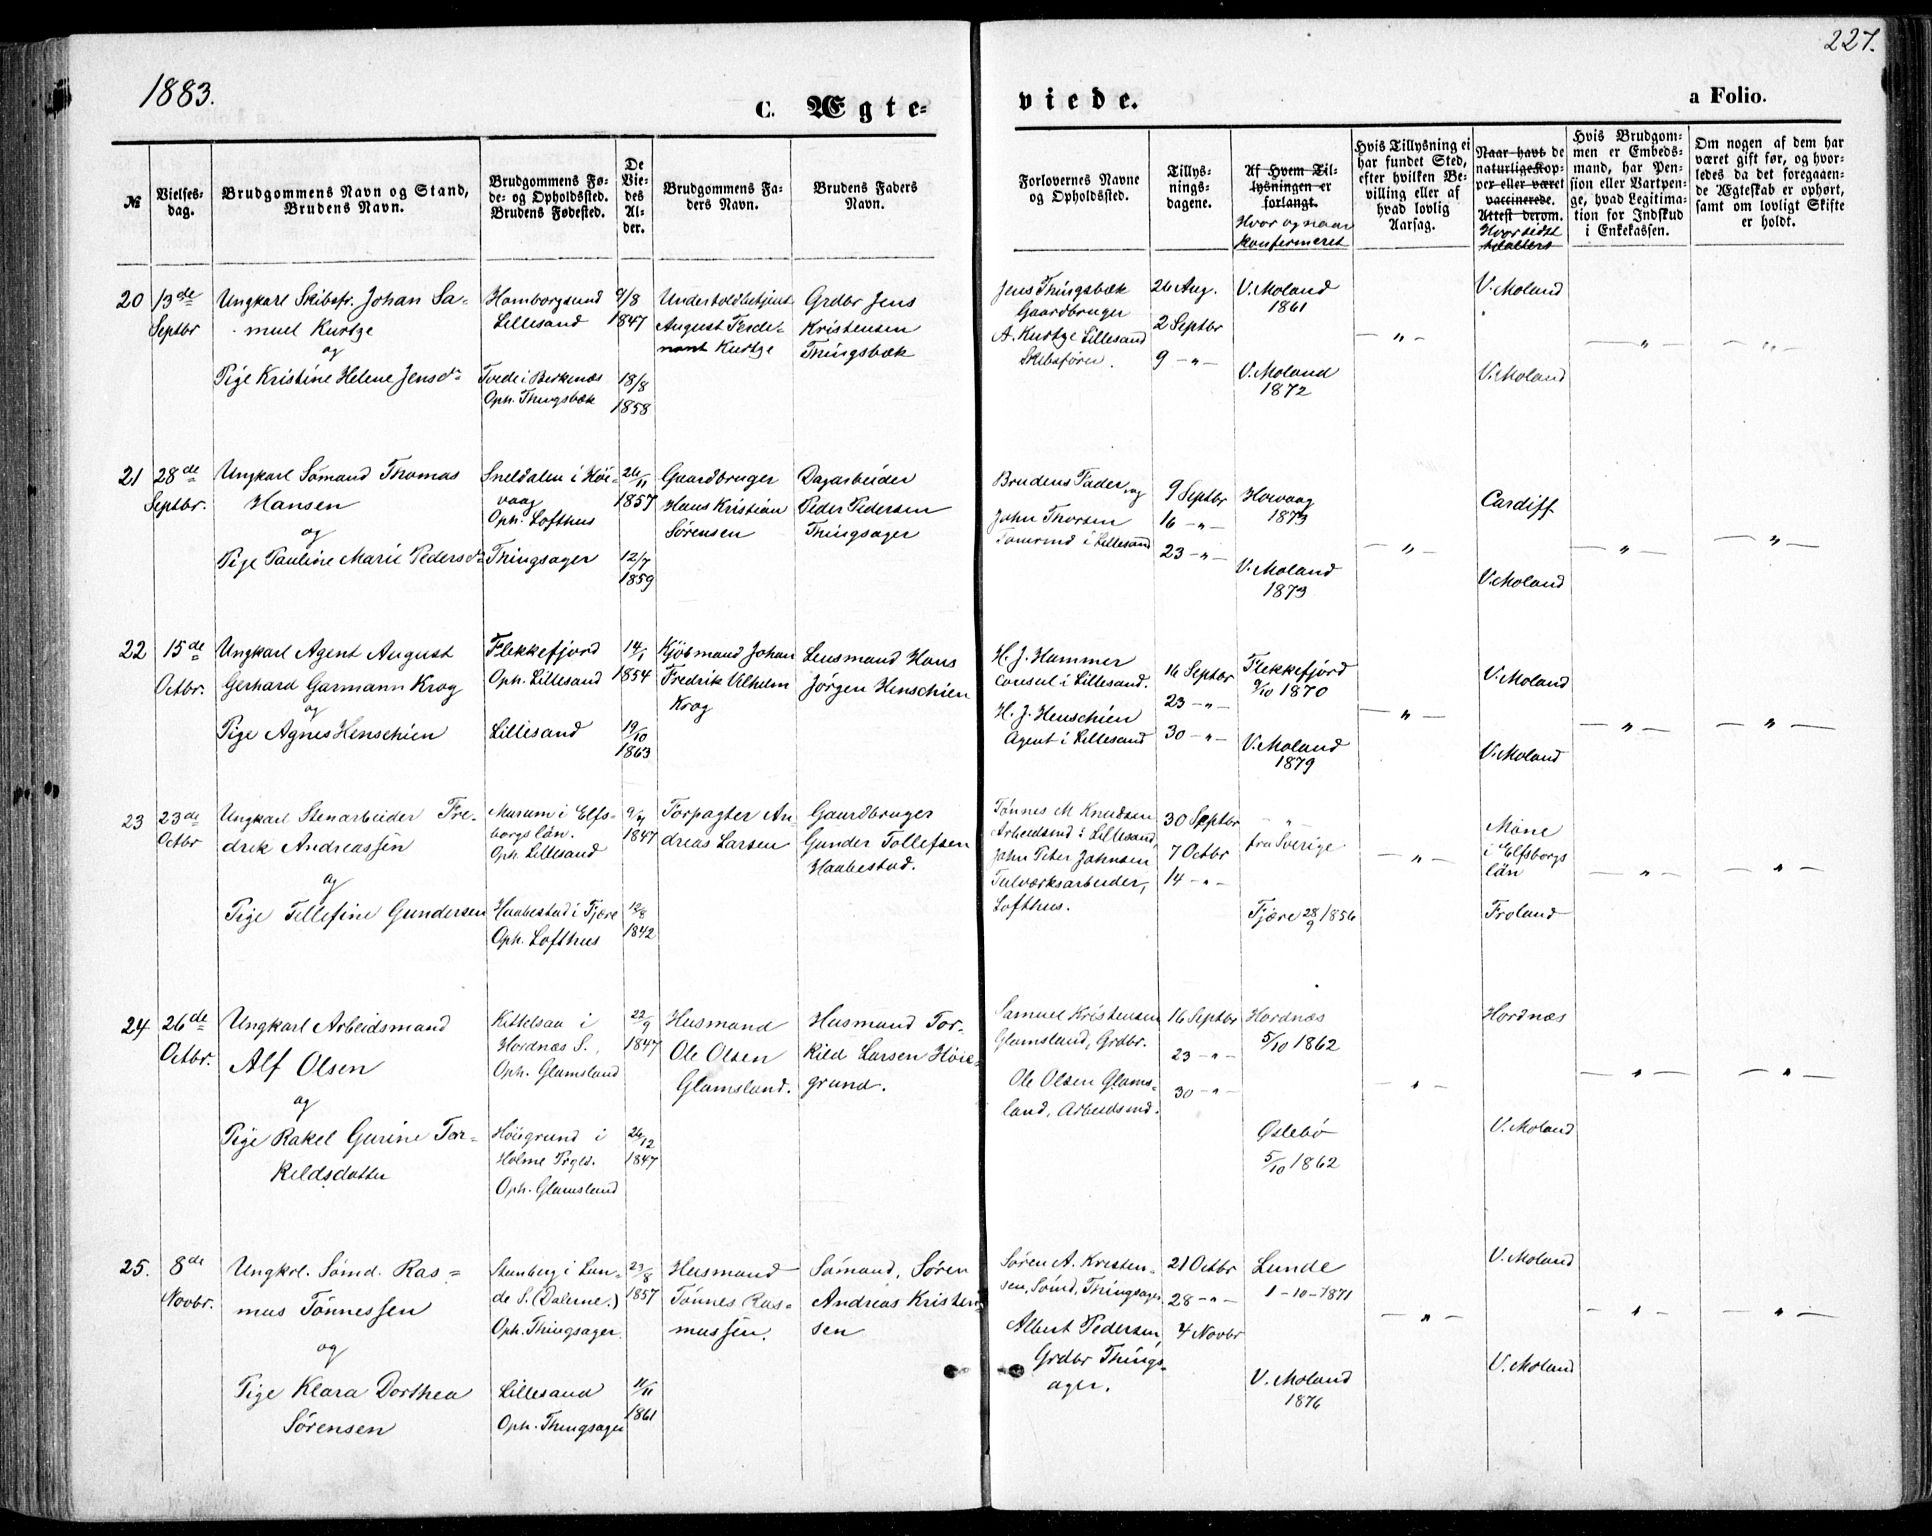 227.
1883.
C. Ægte-
viede.
a Folio.
№
Vielses-
dag.
Brudgommens Navn og Stand,
Brudens Navn.
Brudgommens Fø-
de- og Opholdssted.
Brudens Fødested.
De
Vie-
des
Al-
der.
Brudgommens Fa-
ders Navn.
Brudens Faders
Navn.
Forlovernes Navne
og Opholdssted.
Tillys-
nings-
dagene.
Af Hvem Til-
lysningen er
forlangt.
Hvor og naar
konfirmeret
Hvis Tillysning ei
har fundet Sted,
efter hvilken Be-
villing eller af
hvad lovlig
Aarsag.
Naar havt de
naturlige Kop-
per eller været
vaccinerede.
Attest derom.
Hvor sidst
Hvis Brudgom-
men er Embeds-
mand, har Pen-
sion eller Vartpen-
ge, hvad Legitima-
tion for Indskud
i Enkekassen.
Om nogen af dem har
været gift før, og hvor-
ledes da det foregaaen-
de Ægteskab er ophørt,
samt om lovligt Skifte
er holdt.
20
13de
Septbr
Ungkarl Skibsfr. Johan Sa-
muel Kurtze
og
Pige Kristine Helene Jensdr
Homborgsund
Lillesand
Tvede i Berkenæs
Oph. Thingsbæk
/8
1847
18/8
1858
Underfoldbetjent
August Ferde-
nant Kurtze
Grdbr Jens
Kristensen
Thingsbæk
Jens Thingsbæk
Gaardbruger
A. Kurtze Lillesand
Skibsfører.
26 Aug.
2 Septbr
9 -"-
V. Moland
1861
V. Moland
1872
-"-
V. Moland
V. Moland
-"-
-"-
21
28de
Septbr.
Ungkarl Sømand Thomas
Hansen
og
Pige Pauline Marie Pedersdr
Sneldalen i Høi-
vaag
Oph. Lofthus
Thingsager
26/11
1857
12/7
1859
Gaardbruger
Hans Kristian
Sørensen
Dagarbeider
Peder Pedersen
Thingsager
Brudens Fader og
John Thorsen
Tømrmd i Lillesand
9 Septbr
16 -"-
23 -"-
Høivaag
1873
V. Moland
1873
-"-
Cardiff
V. Moland
-"-
-"-
22
15de
Octbr.
Ungkarl Agent August
Gerhard Garmann Krog
og
Pige Agnes Henschien
Flekkefjord
Oph. Lillesand
Lillesand
14/1
1854
19/10
1863
Kjøbmand Johan
Fredrik Vilhelm
Krog
Lensmand Hans
Jørgen Henschien
H. J. Hammer
Consul i Lillesand.
H. J. Henschien
Agent i Lillesand
16 Septbr
23 -"-
30 -"-
Flekkefjord
9/10 1870
V. Moland
1879
-"-
V. Moland
V. Moland
-"-
-"-
23
23de
Octbr
Ungkarl Stenarbeider Fre-
drik Andreassen
og
Pige Tellefine Gundersen
Murum i Elfs-
borgs län.
Oph. Lillesand
Haabestad i Fjære
Oph. Lofthus
1847
12/8
1842
Forpagter An-
dreas Larsen
Gaardbruger
Gunder Tollefsen
Haabestad.
Tønnes M Knudsen
Arbeidsmd i Lillesand,
John Peter Johnsen
Tulværksarbeider,
Lofthus.
30 Septbr
7 Octbr
14 -"-
-"-
fra Sverige
Fjære 28/9 1856
-"-
Møne
i Elfsborgs
län
Froland
-"-
-"-
24
26de
Octbr.
Ungkarl Arbeidsmand
Alf Olsen
og
Pige Rakel Gurine Tor-
kildsdatter
Kittelsaa i
Hordnæs S.,
Oph. Glamsland
Høiegrund i
Holme Prgld.
Oph. Glamsland
22/9
1847
26/12
1847
Husmand
Ole Olsen
Glamsland.
Husmand Tor-
kild Larsen Høie-
grund.
Samuel Kristensen
Glamsland, Grdbr.
Ole Olsen Glams-
land, Arbeidsmd.
16 Septbr
23 -"-
30 -"-
Hordnæs
5/10 1862
Øslebø
5/10 1862
-"-
Hordnæs
V. Moland
-"-
-"-
25.
8de
Novbr.
Ungkrl. Sømd. Ras-
mus Tønnessen
og
Pige Klara Dorthea
Sørensen
Stenberg i Lun-
de S. (Dalerne.)
Oph. Thingsager.
Lillesand
Oph. Thingsager
23/8
1857
11/11
1861
Husmand
Tønnes Ras-
mussen.
Sømand, Søren
Andreas Kristen-
sen
Søren A. Kristen-
sen, Sømd, Thingsager
Albert Pedersen,
Grdbr Things-
ager.
21 Octbr
28 -"-
4 Novbr
Lunde
1-10-1871
V. Moland
1876
-"-
V. Moland
V. Moland
-"-
-"-